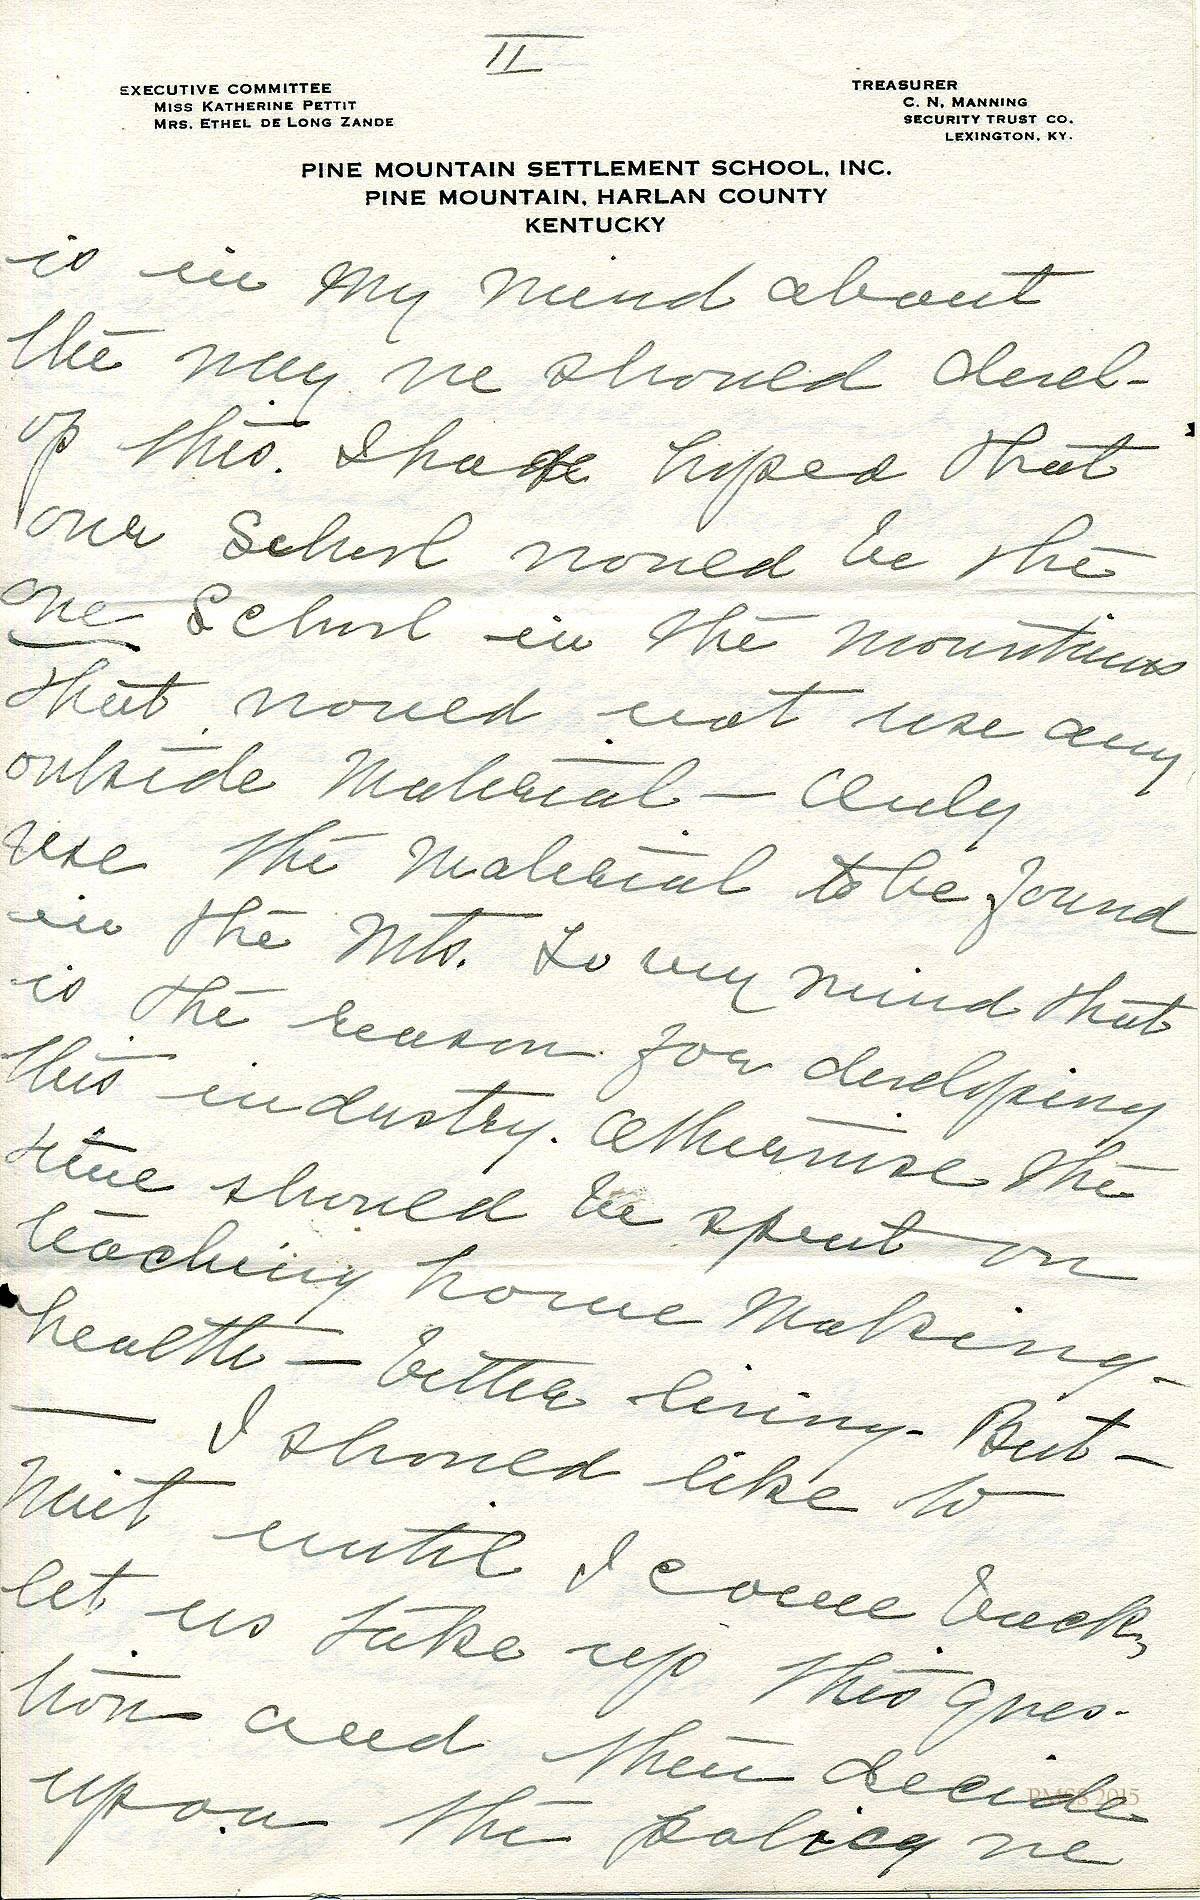 II
EXECUTIVE COMMITTEE
MISS KATHERINE PETTIT
MRS. ETHEL DE LONG ZANDE
TREASURER
C. N. MANNING
SECURITY TRUST CO.
LEXINGTON, KY.
PINE MOUNTAIN SETTLEMENT SCHOOL, INC.
PINE MOUNTAIN, HARLAN COUNTY
KENTUCKY
is in my mind about
the way we should devel-
op this. I have hoped that
our School would be the
one School in the mountains
that would not use any
outside material — Only
use the material to be found
in the Mts. To my mind that
is the reason for developing
this industry. Otherwise the
time should be spent on
teaching home making -
health — better living. But —
— I should like to
wait until I come back,
let us take up this ques-
tion and then decide
upon the policy we
PMSS 2015